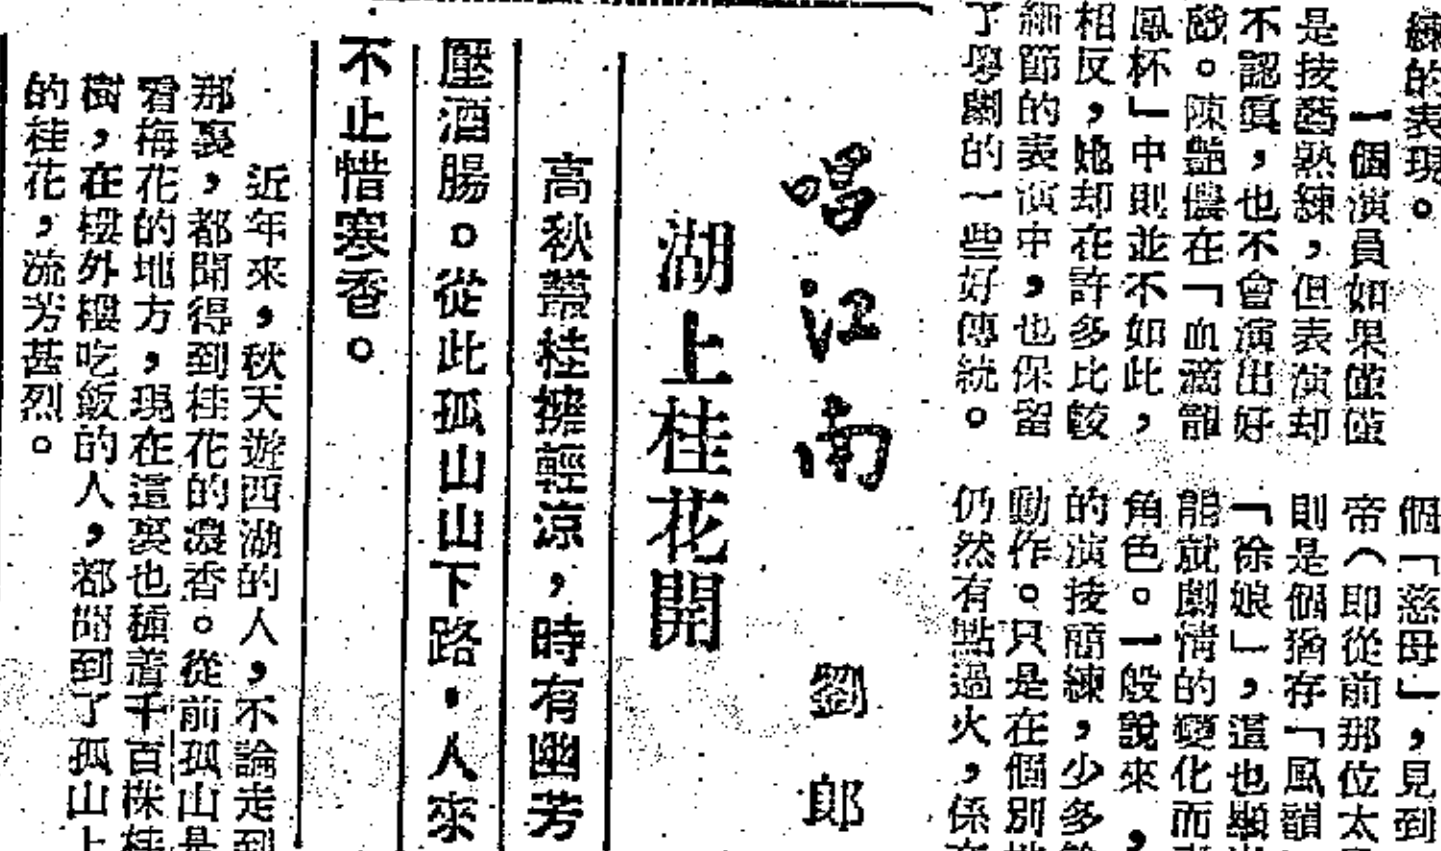 練的表現。
一個演員如果僅僅
是按藝熟練，但表演却
不認眞，也不會演出好
戲。陳艷儂在「血滴龍
鳳杯」中則並不如此，
相反，她却在許多比較
細節的表演中，也保留
了學劇的一些好傳統。
個「慈母」，見到
帝（即從前那位太
則是個猶存「風韻
「徐娘」，這也顯
能就劇情的變化而
角色。一般說來，
的演技簡練，少多
動作。只是在個別
仍然有點過火，係
唱江南
劉郎
湖上桂花開
高秋叢桂擁輕涼，時有幽芳
壓酒腸。從此孤山山下路，人來
不止惜寒香。
近年來，秋天遊西湖的人，不論走到
那裏，都聞得到桂花的濃香。從前孤山是
看梅花的地方，現在這裏也種着千百株桂
樹，在樓外樓吃飯的人，都聞到了孤山上
的桂花，流芳甚烈。